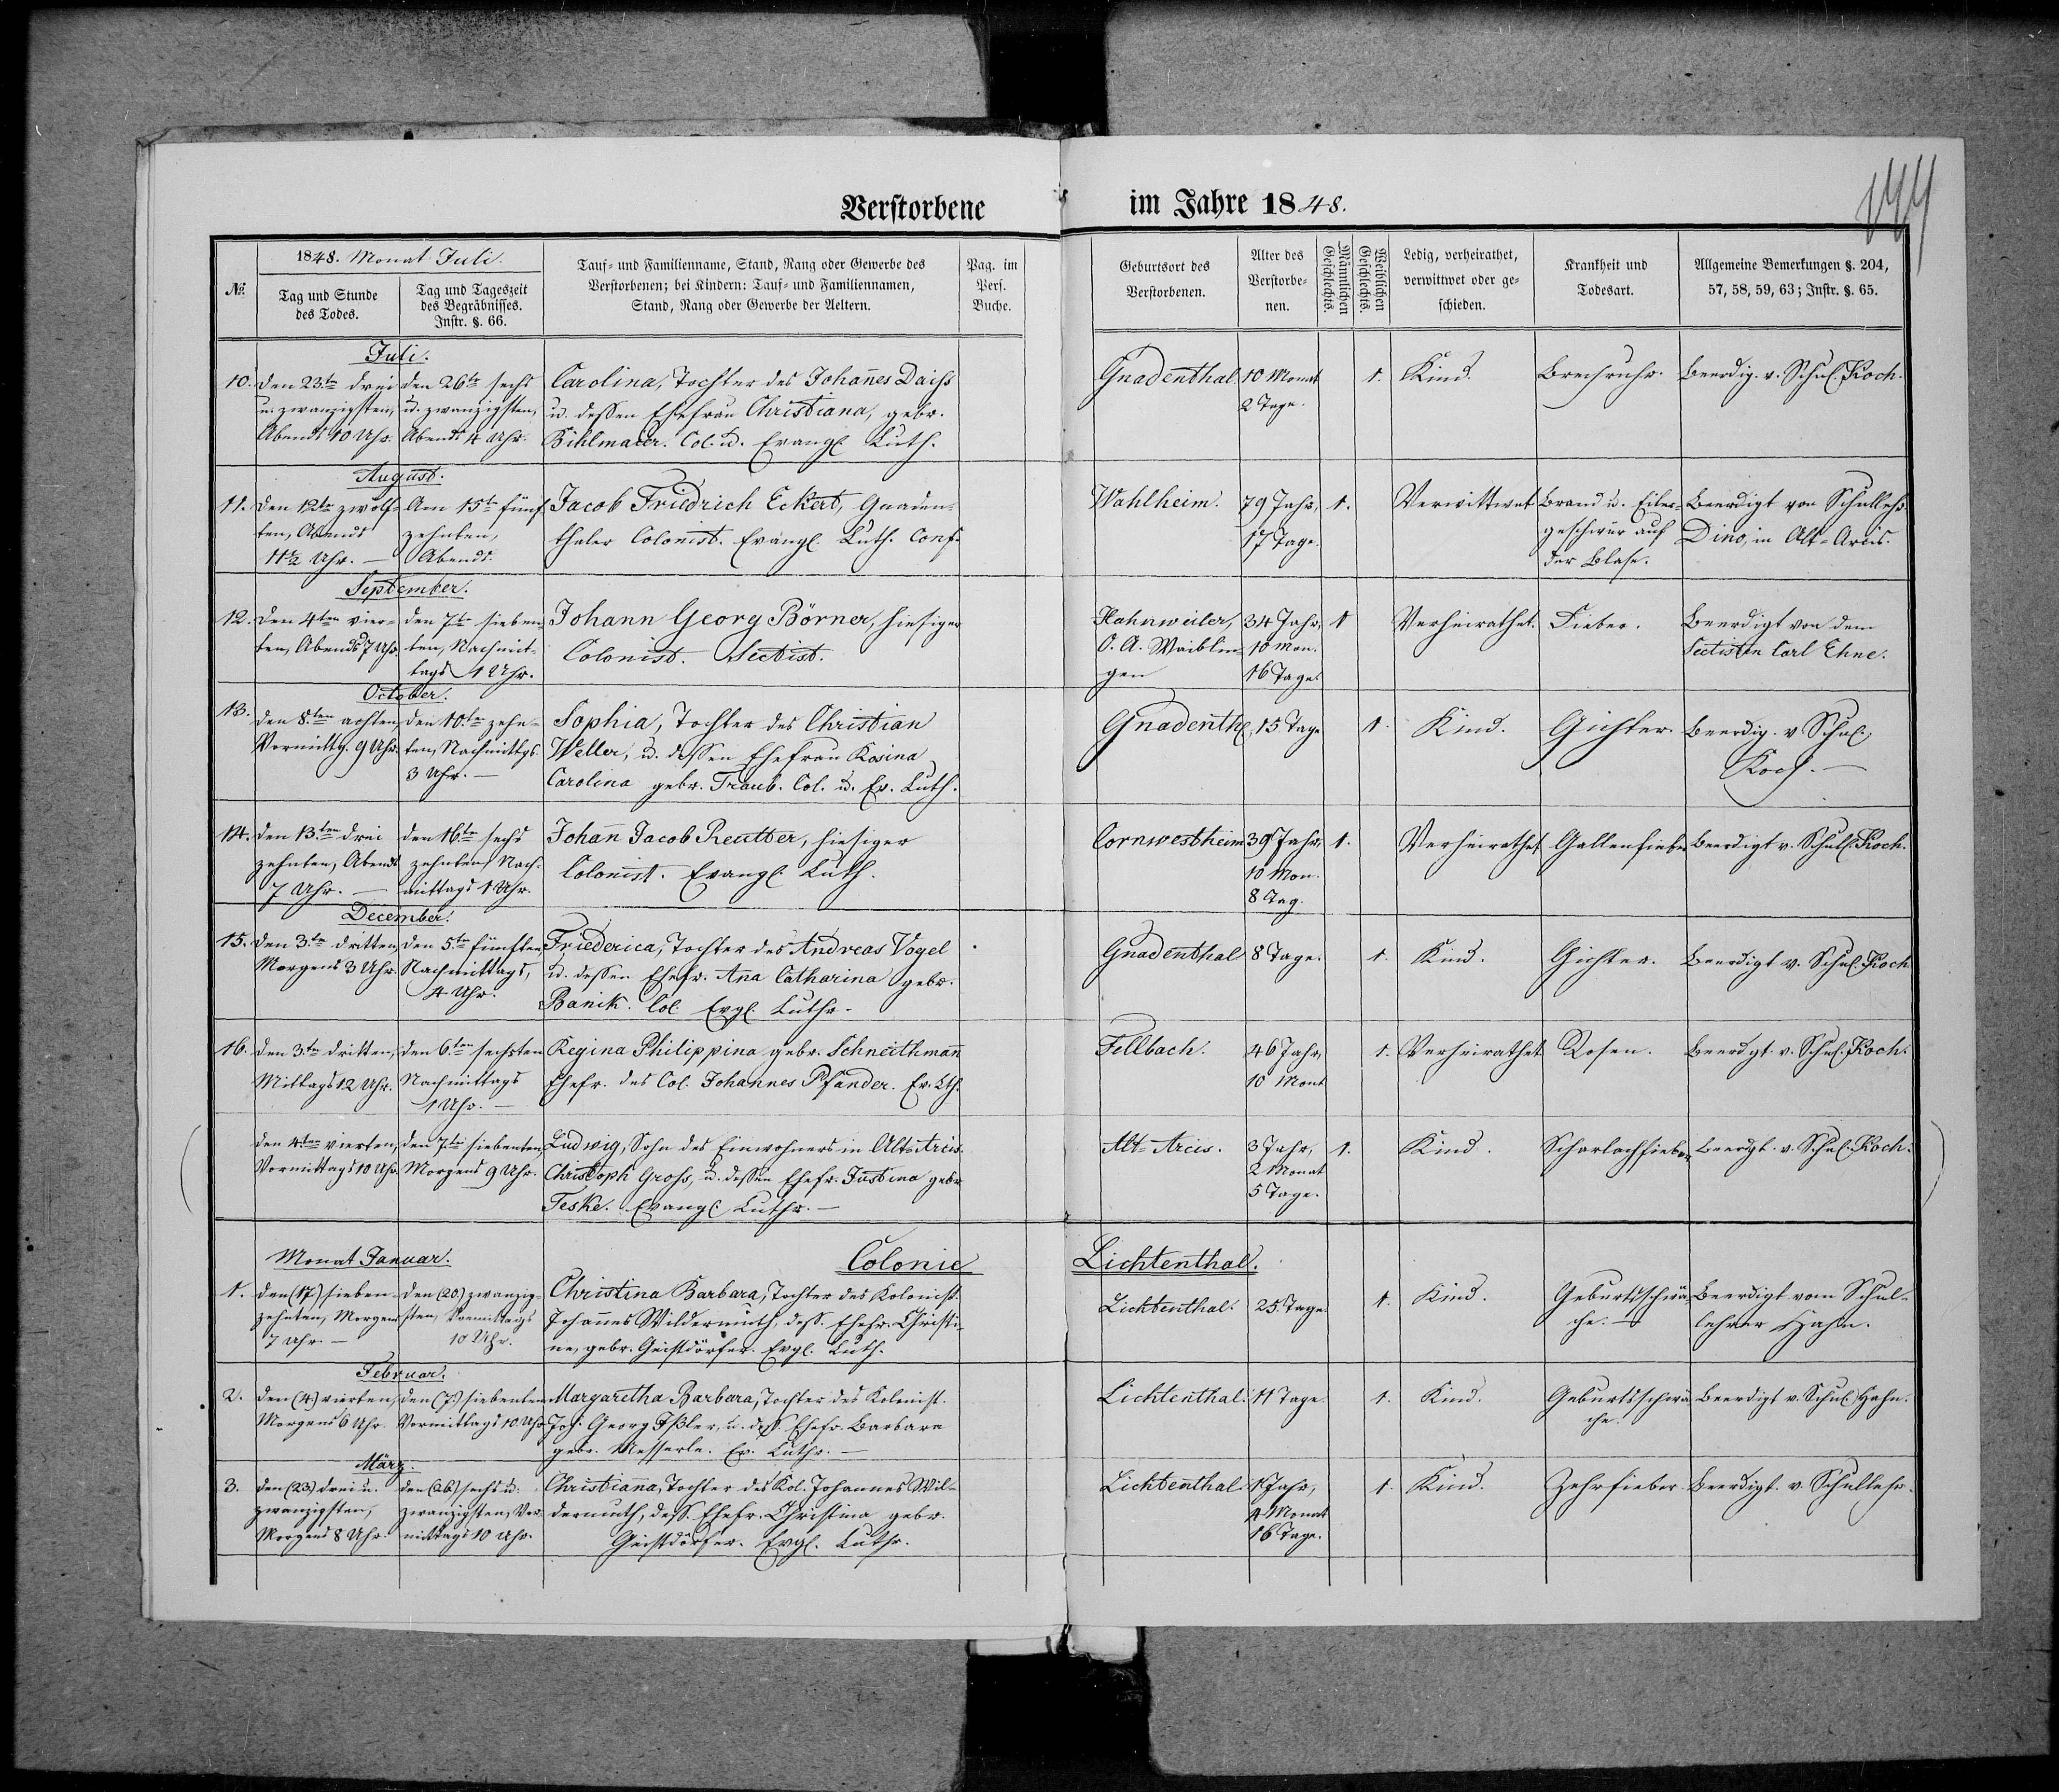 Verstorbene im Jahre 1848.
144
№.
1848. Monat Juli.
Tag und Stunde
des Todes.
Tag und Tageszeit
des Begräbnisses.
Instr. §. 66.
Tauf- und Familienname, Stand, Rang oder Gewerbe des
Verstorbenen; bei Kindern: Tauf- und Familiennamen,
Stand, Rang oder Gewerbe der Aeltern.
Pag. im
Pers.
Buche.
Geburtsort des
Verstorbenen.
Alter des
Verstorbe-
nen.
Männlichen
Geschlechts.
Weiblichen
Geschlechts.
Ledig, verheirathet,
verwittwet oder ge-
schieden.
Krankheit und
Todesart.
Allgemeine Bemerkungen §. 204,
57, 58, 59, 63; Instr. §. 65.
Juli.
10.
den 23ten drei
u. zwanzigsten,
Abends 10 Uhr.
den 26te sechs
u. zwanzigsten,
Abends 4 Uhr.
Carolina, Tochter des Johañes Daiss
u. dessen Ehefrau Christiana, gebr.
Bihlmaier. Col. u. Evangl. Luth.
Gnadenthal.
10 Monat
2 Tage.
1.
Kind.
Brechruhr.
Beerdig. v. Schul. Koch.
August.
11.
den 12te zwölf-
ten, Abends
11½ Uhr. —
Am 15te fünf
zehnten,
Abends.
Jacob Friedrich Eckert, Gnaden-
thaler Colonist. Evangl. Luth. Conf.
Wahlheim.
79 Jahr,
17 Tage.
1.
Verwittwet
Brand u. Eiter-
geschwür auf
der Blase.
Beerdigt von Schullehr.
Dino, in Alt-Arcis.
September.
12.
den 4ten vier-
ten, Abends 7 Uhr.
den 7te sieben
ten, Nachmit-
tags 1 Uhr.
Johann Georg Börner, hiesiger
Colonist. Sectist.
Hahnweiler,
O. A. Waiblin-
gen
34 Jahr,
10 Mon.
16 Tage.
1
Verheirathet.
Fieber.
Beerdigt von dem
Sectisten Carl Ehne.
October.
13.
den 8.ten achten
Vormittg. 9 Uhr.
den 10.te zehn-
ten, Nachmittgs.
3 Uhr. —
Sophia, Tochter des Christian
Weller, u. dessen Ehefrau Rosina
Carolina gebr. Traub. Col. u. Ev. Luth.
Gnadenth.
15 Tage
1.
Kind.
Gichter.
Beerdig. v. Schul.
Koch. —
14.
den 13.ten drei
zehnten, Abends
7 Uhr. —
den 16.te sechs
zehnten, Nach-
mittags 1 Uhr.
Johañ Jacob Reutter, hiesiger
Colonist. Evangl. Luth.
Cornwestheim
39 Jahr,
10 Mon.
8 Tag.
1.
Verheirathet
Gallenfieber
Beerdigt v. Schull. Koch.
December.
15.
den 3.te dritten,
Morgens 3 Uhr.
den 5.te fünften,
Nachmittags,
4 Uhr.
Friederica, Tochter des Andreas Vogel
u. dessen Ehefr. Aña Catharina gebr.
Banik. Col. Evgl. Luthr.
Gnadenthal
8 Tage.
1.
Kind.
Gichter.
Beerdigt v. Schul. Koch
16.
den 3.te dritten,
Mittags 12 Uhr.
den 6.ten sechsten
Nachmittags
1 Uhr. —
Regina Philippina gebr. Schneithmañ
Ehefr. des Col. Johannes Pfander. Ev. Lth.
Fellbach.
46 Jahr,
10 Mont
1.
Verheirathet
Rosen.
Beerdgt. v. Schul. Koch.
den 4.ten vierten,
Vormittags 10 Uhr.
den 7.te siebenten
Morgens 9 Uhr.
Ludwig, Sohn des Einwohners in Alt-Arcis.
Christoph Gross, u. dessen Ehefr. Justina gebr
Teske. Evangl. Luthr. —
Alt-Arcis.
3 Jahr,
2 Monat
5 Tage.
1.
Kind.
Scharlachfieber
Beerdgt. v. Schul. Koch.
Colonie Lichtenthal.
Monat Januar.
1.
den (17.) sieben-
zehnten, Morgens
7 Uhr. —
den (20.) zwanzig-
sten, Vormittags
10 Uhr.
Christina Barbara, Tochter des Kolonist.
Johañes Wildermuth, dess. Ehefr. Christi-
ne, gebr. Geistdörfer. Evgl. Luth.
Lichtenthal.
25 Tage.
1.
Kind.
Geburtsschwä-
che. —
Beerdigt vom Schul-
lehrer Hahn.
Februar.
2.
den (4.) vierten,
Morgens 6 Uhr.
den (7.) siebenten
Vormittags 10 Uhr
Margaretha Barbara, Tochter des Kolonist.
Joh. Georg Ißler, u. dess. Ehefr. Barbara
gebr. Messerle. Ev. Luthr. —
Lichtenthal.
11 Tage
1.
Kind.
Geburtsschwä-
che.
Beerdigt v. Schul. Hahn.
März.
3.
den (23.) drei u.
zwanzigsten,
Morgens 8 Uhr.
den (26.) sechs u.
zwanzigsten, Vor-
mittags 10 Uhr.
Christiana, Tochter des Kol. Johannes Wil-
dermuth, dess. Ehefr. Christina gebr.
Geistdörfer. Evgl. Luthr.
Lichtenthal.
1 Jahr,
4 Monat
16 Tage.
1.
Kind.
Zehrfieber.
Beerdigt v. Schullehr.